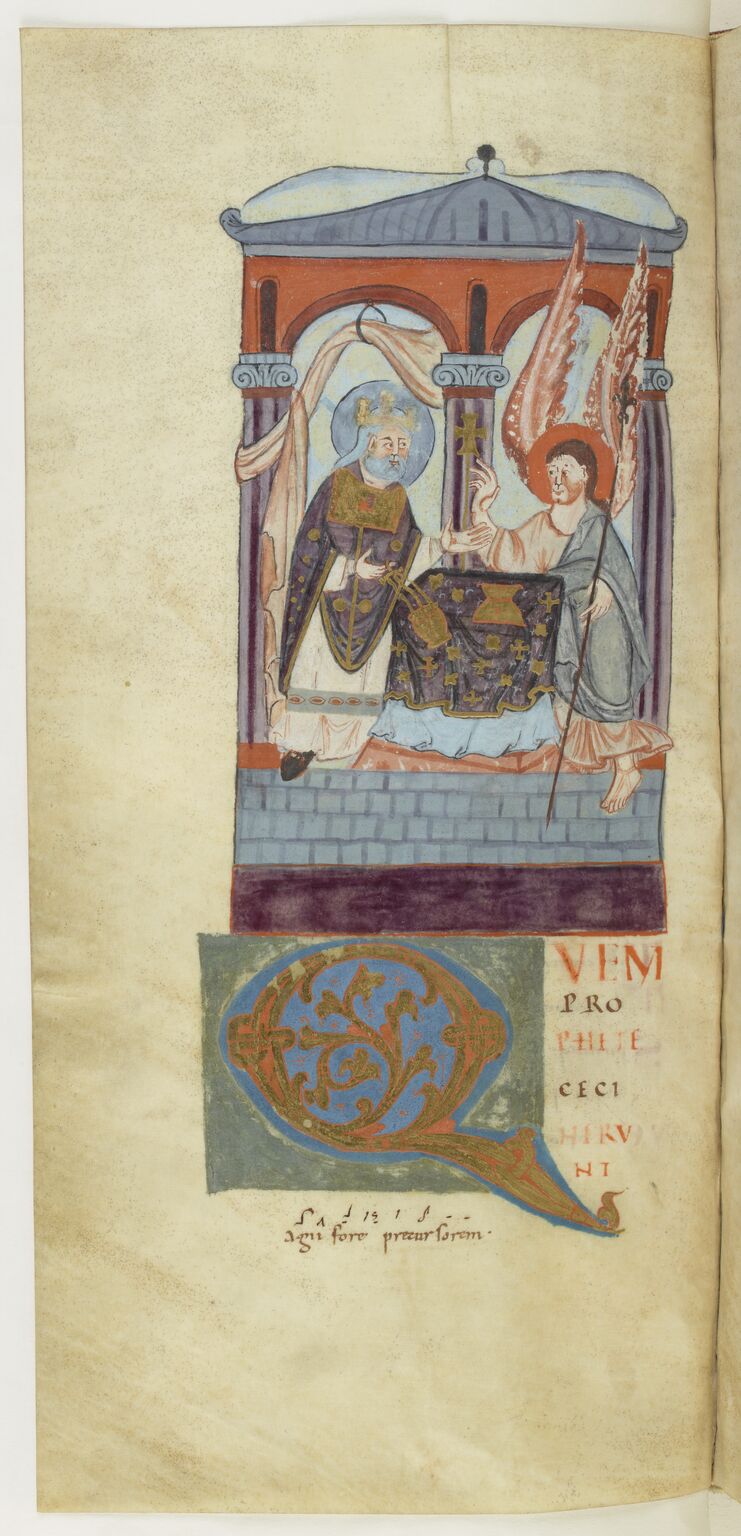 QVEM
PRO
PHETE
CECI
NERV
NT
agni fore precursorem.